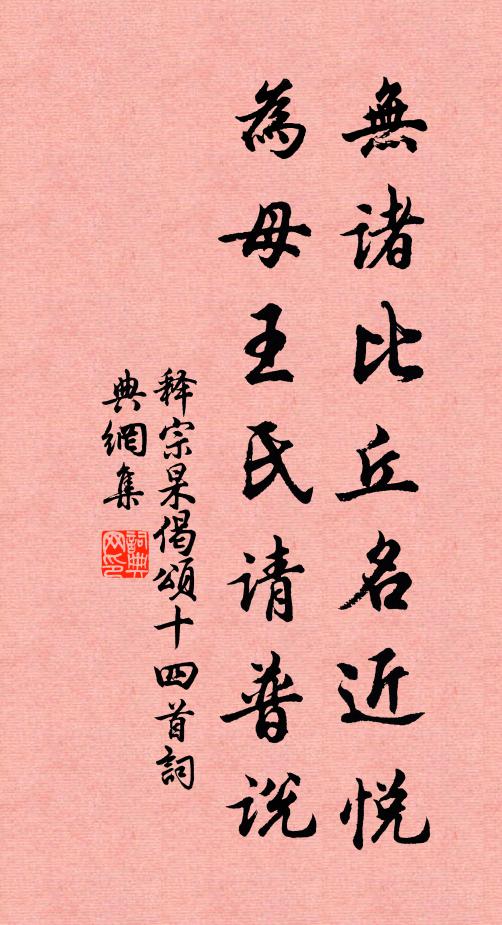 無諸比丘名近悦
為母王氏请普说
释宗杲偈頌十四首詞
典網集
詞典网印